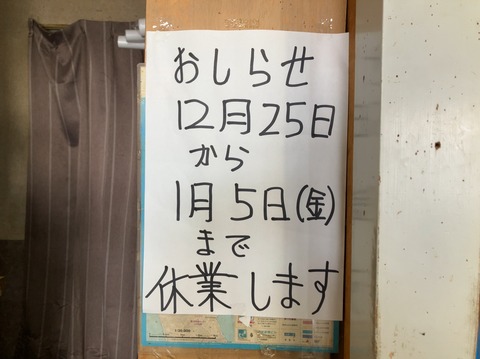 おしらせ
12月25日
から
1月5日(金)
まで
休業します